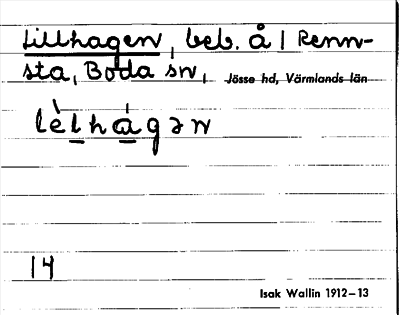 Lillhagen, beb. å Renn-
sta, Boda sn, Jösse hd, Värmlands län
lèlhágən
14
Isak Wallin 1912–13